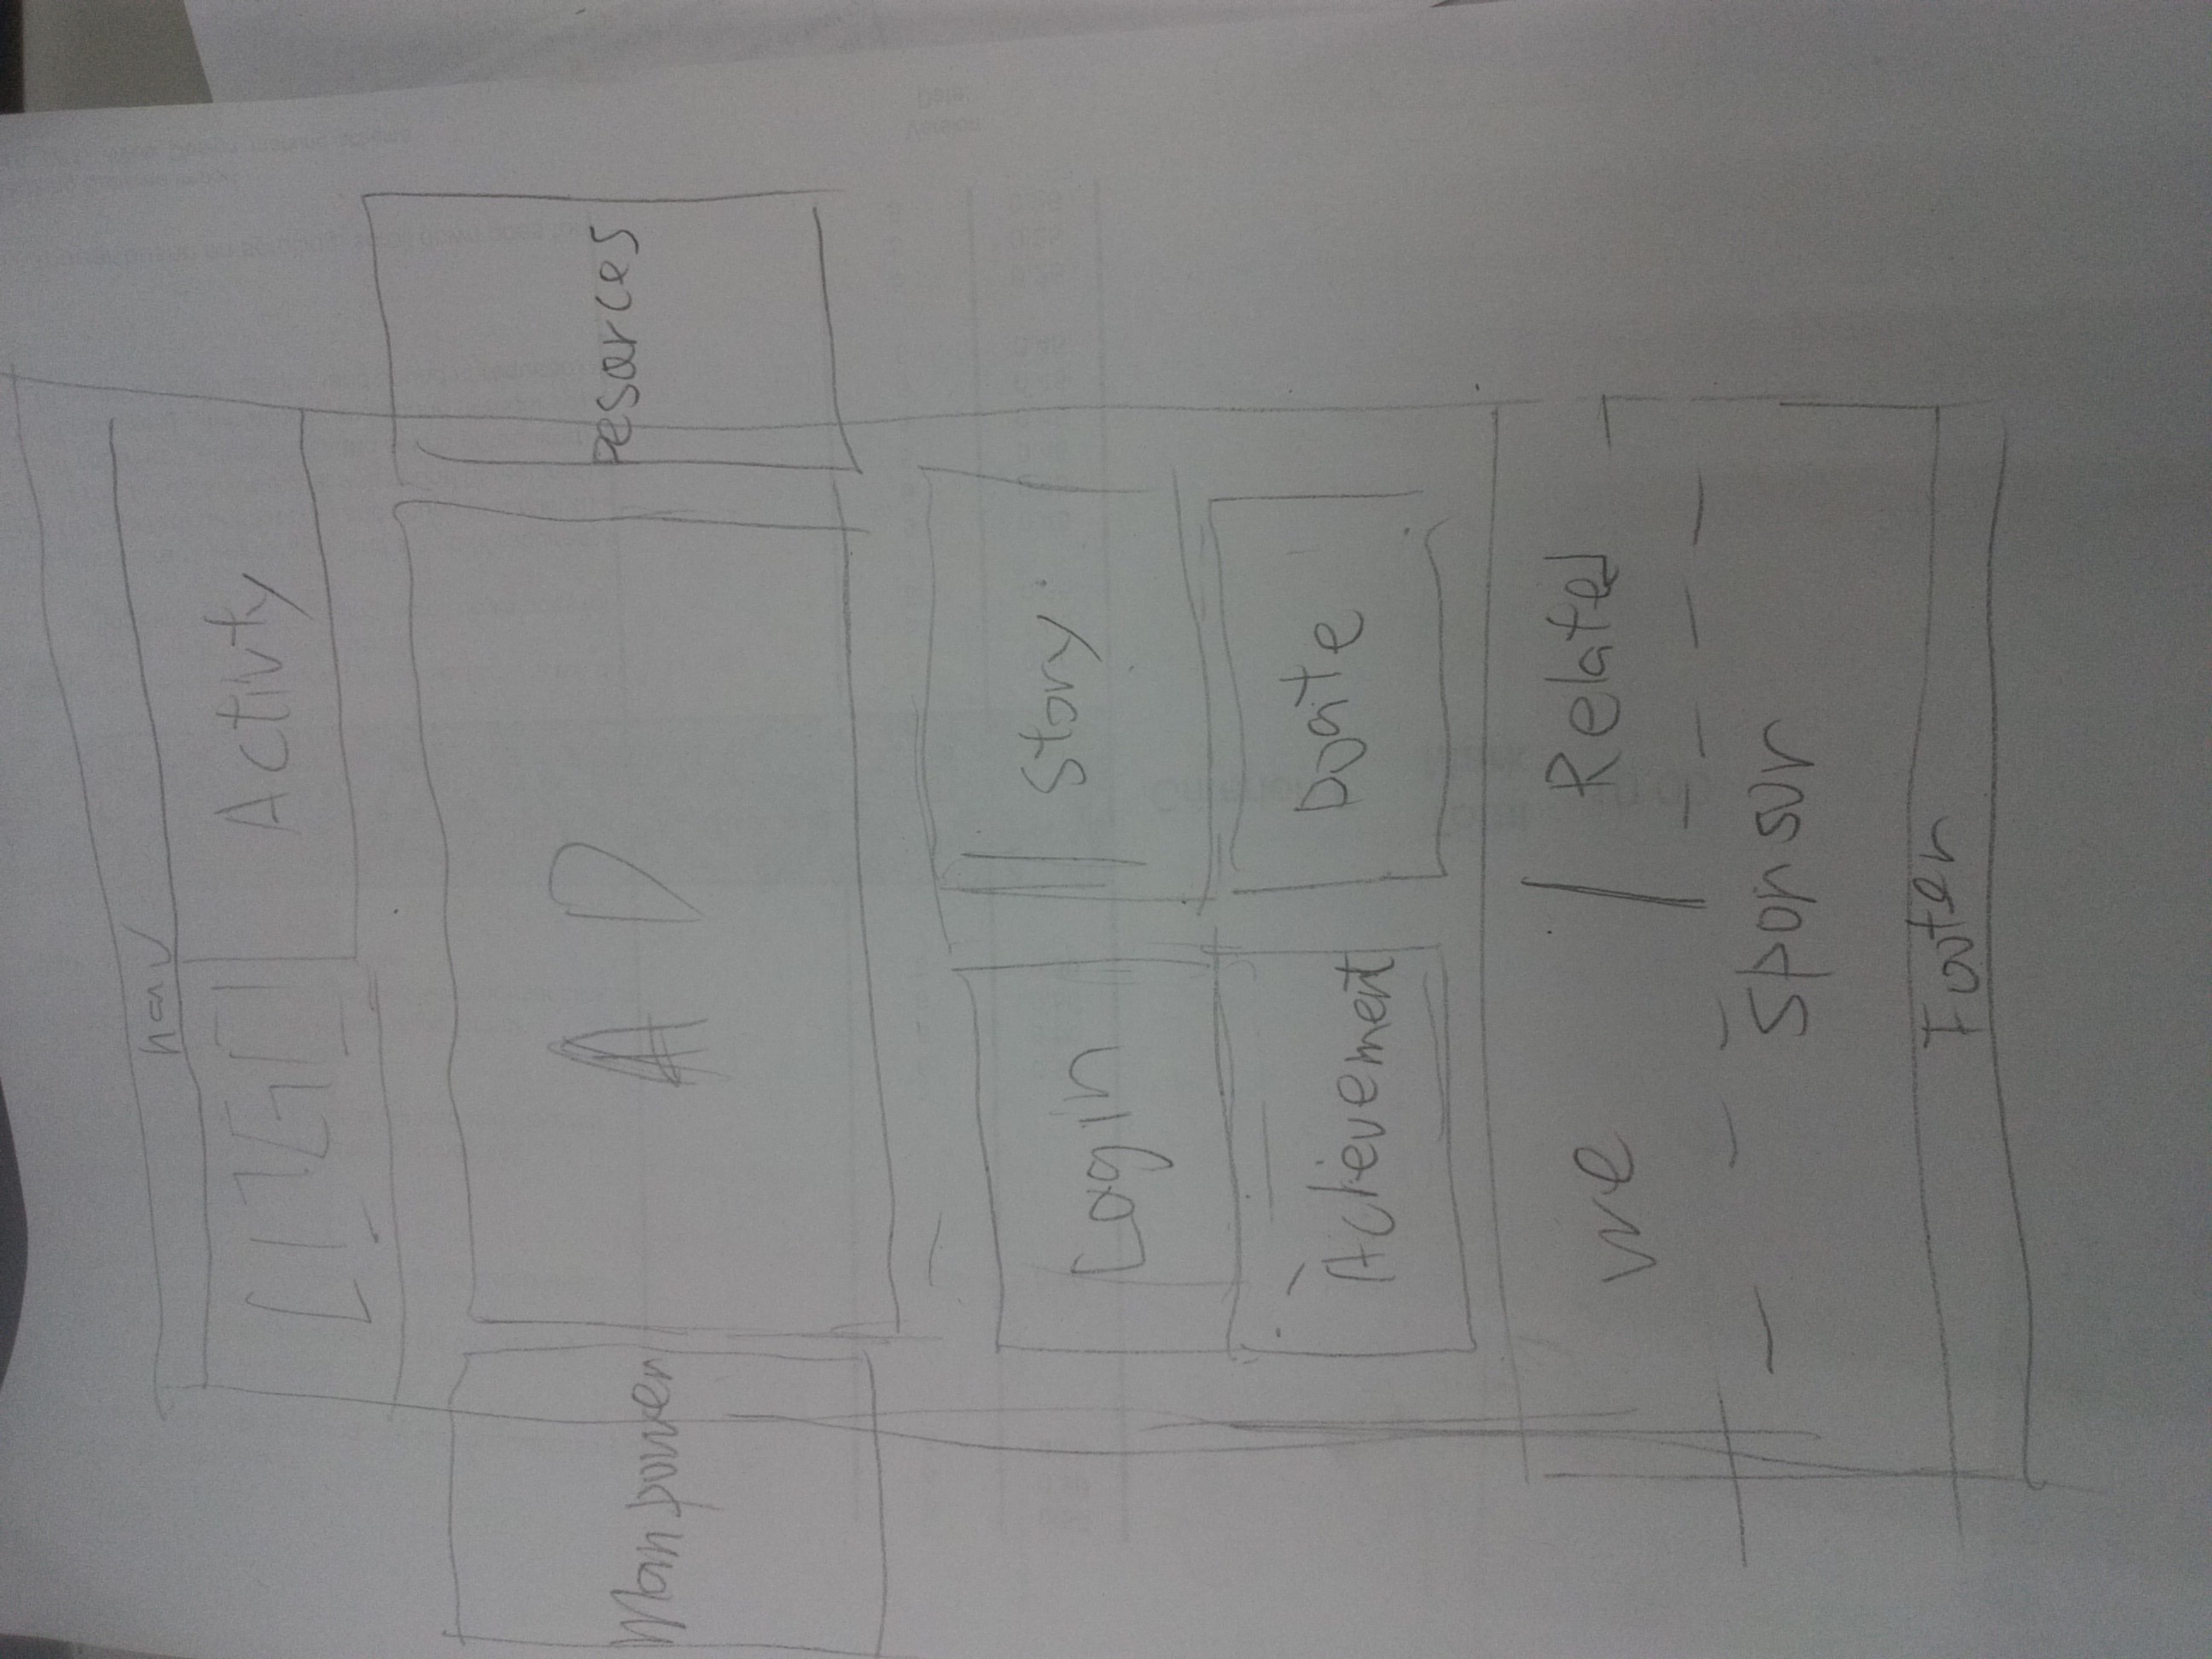 nav
LOGO
Activty
Manpower
AD
resarces
Login
Story
Achievement
Doate
we
Related
Sponsor
Footer